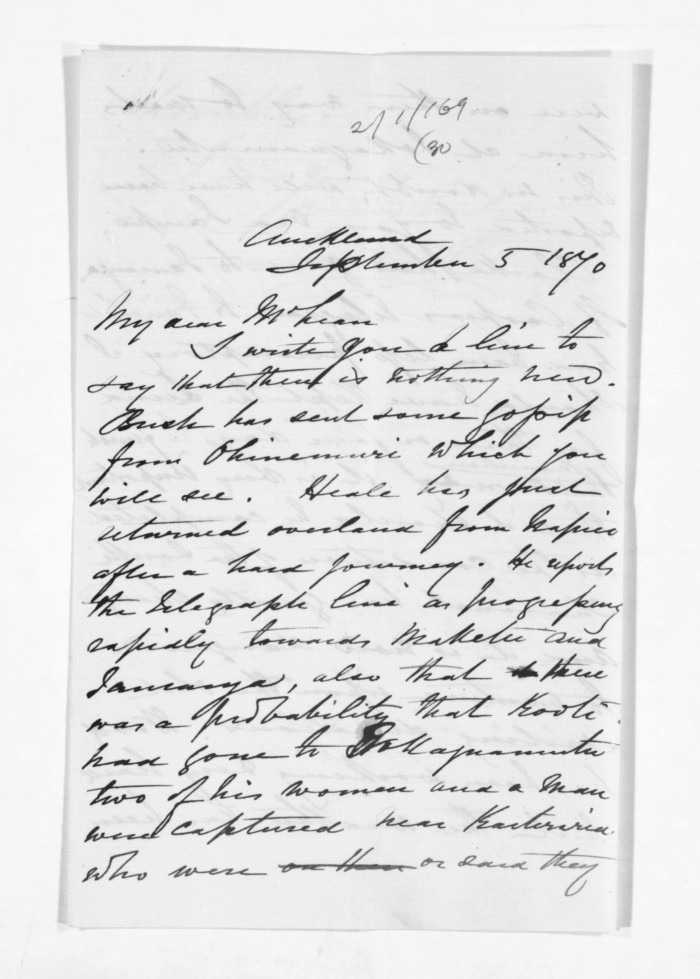 2/1/169
(30
Auckland
September 5 1870
My dear McLean
I write you a line to
say that there is nothing new.
Bush has sent some gossip
from Ohinemuri which you
will see. Heale has just
returned overland from Napier
after a hard journey. He reports
the Telegraph line as progressing
rapidly towards Maketu and
Tauranga, also that there
was a probability that Kooti
had gone to
two of his women and a man
were captured near
who were on them or said they